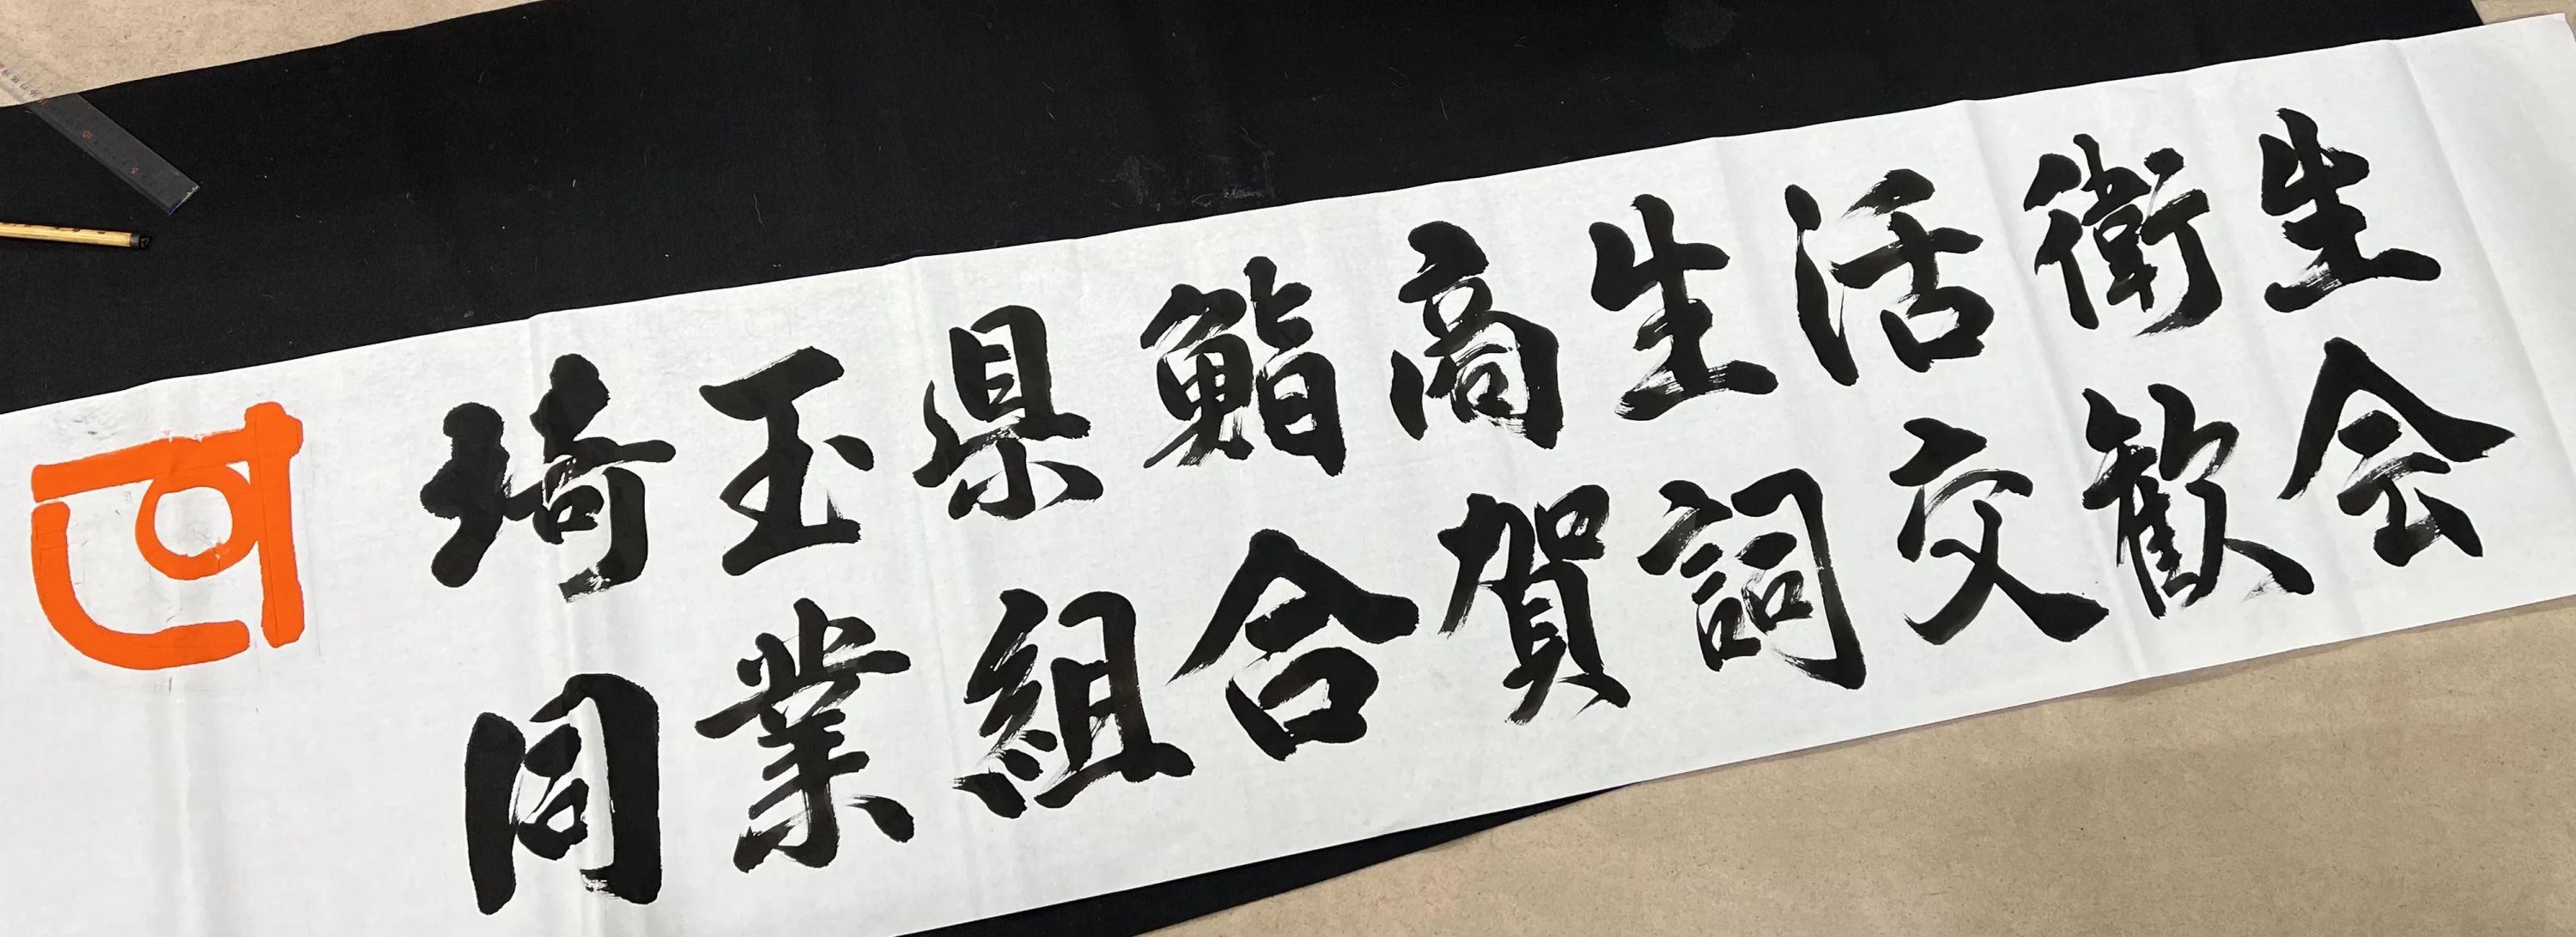 埼玉県鮨商生活衛生
同業組合賀詞交歓会